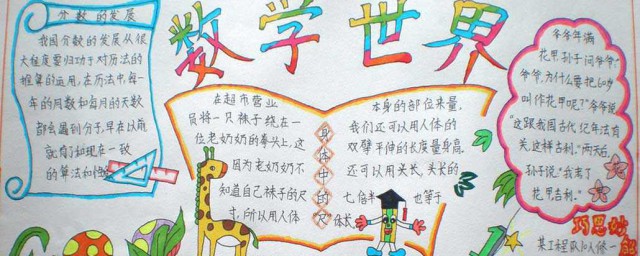 数学世界
分数的发展
我国分数的发展从很
大程度要归功于对历法的
推算的运用,在历法中,每一
年的月数和每月的天数
都会遇到分子,早在以前
就有了和现在一致
的算法和
在超市营业
员将一只袜子绕在一
位老奶奶的拳头上,这
因为老奶奶不
知道自己袜子的尺
寸,所以用人体
身体中的“尺”
本身的部位来量,
我们还可以用人体的
双臂平伸的长度量身高,
还可以用头长,头长的
七倍半也等于
体长
爷爷年满
花甲,孙子问爷爷:“
爷爷,为什么要把60岁
叫作花甲呢?”爷爷说
“这跟我国古代纪年法有
关,这样吉利。”两天后,
孙子说:“我真了
花甲吉利。”
巧思妙解
某工程队10人修一